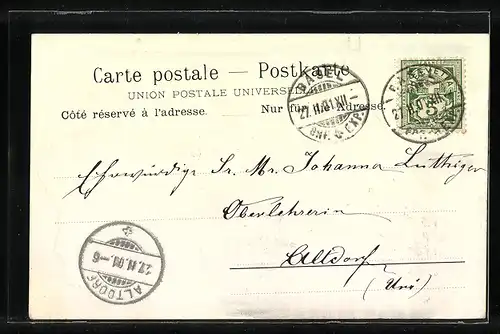 Carte postale — Postkarte
UNION POSTALE UNIVERSELLE
Côté réservé à l'adresse. Nur für die Adresse.
BASEL
27.II.01.XII
BRF. & EXP.
Ehrwürdige Sr. Mr. Johanna
Oberlehrerin
Altdorf
(Uri)
ALTDORF
27.II.01.–6